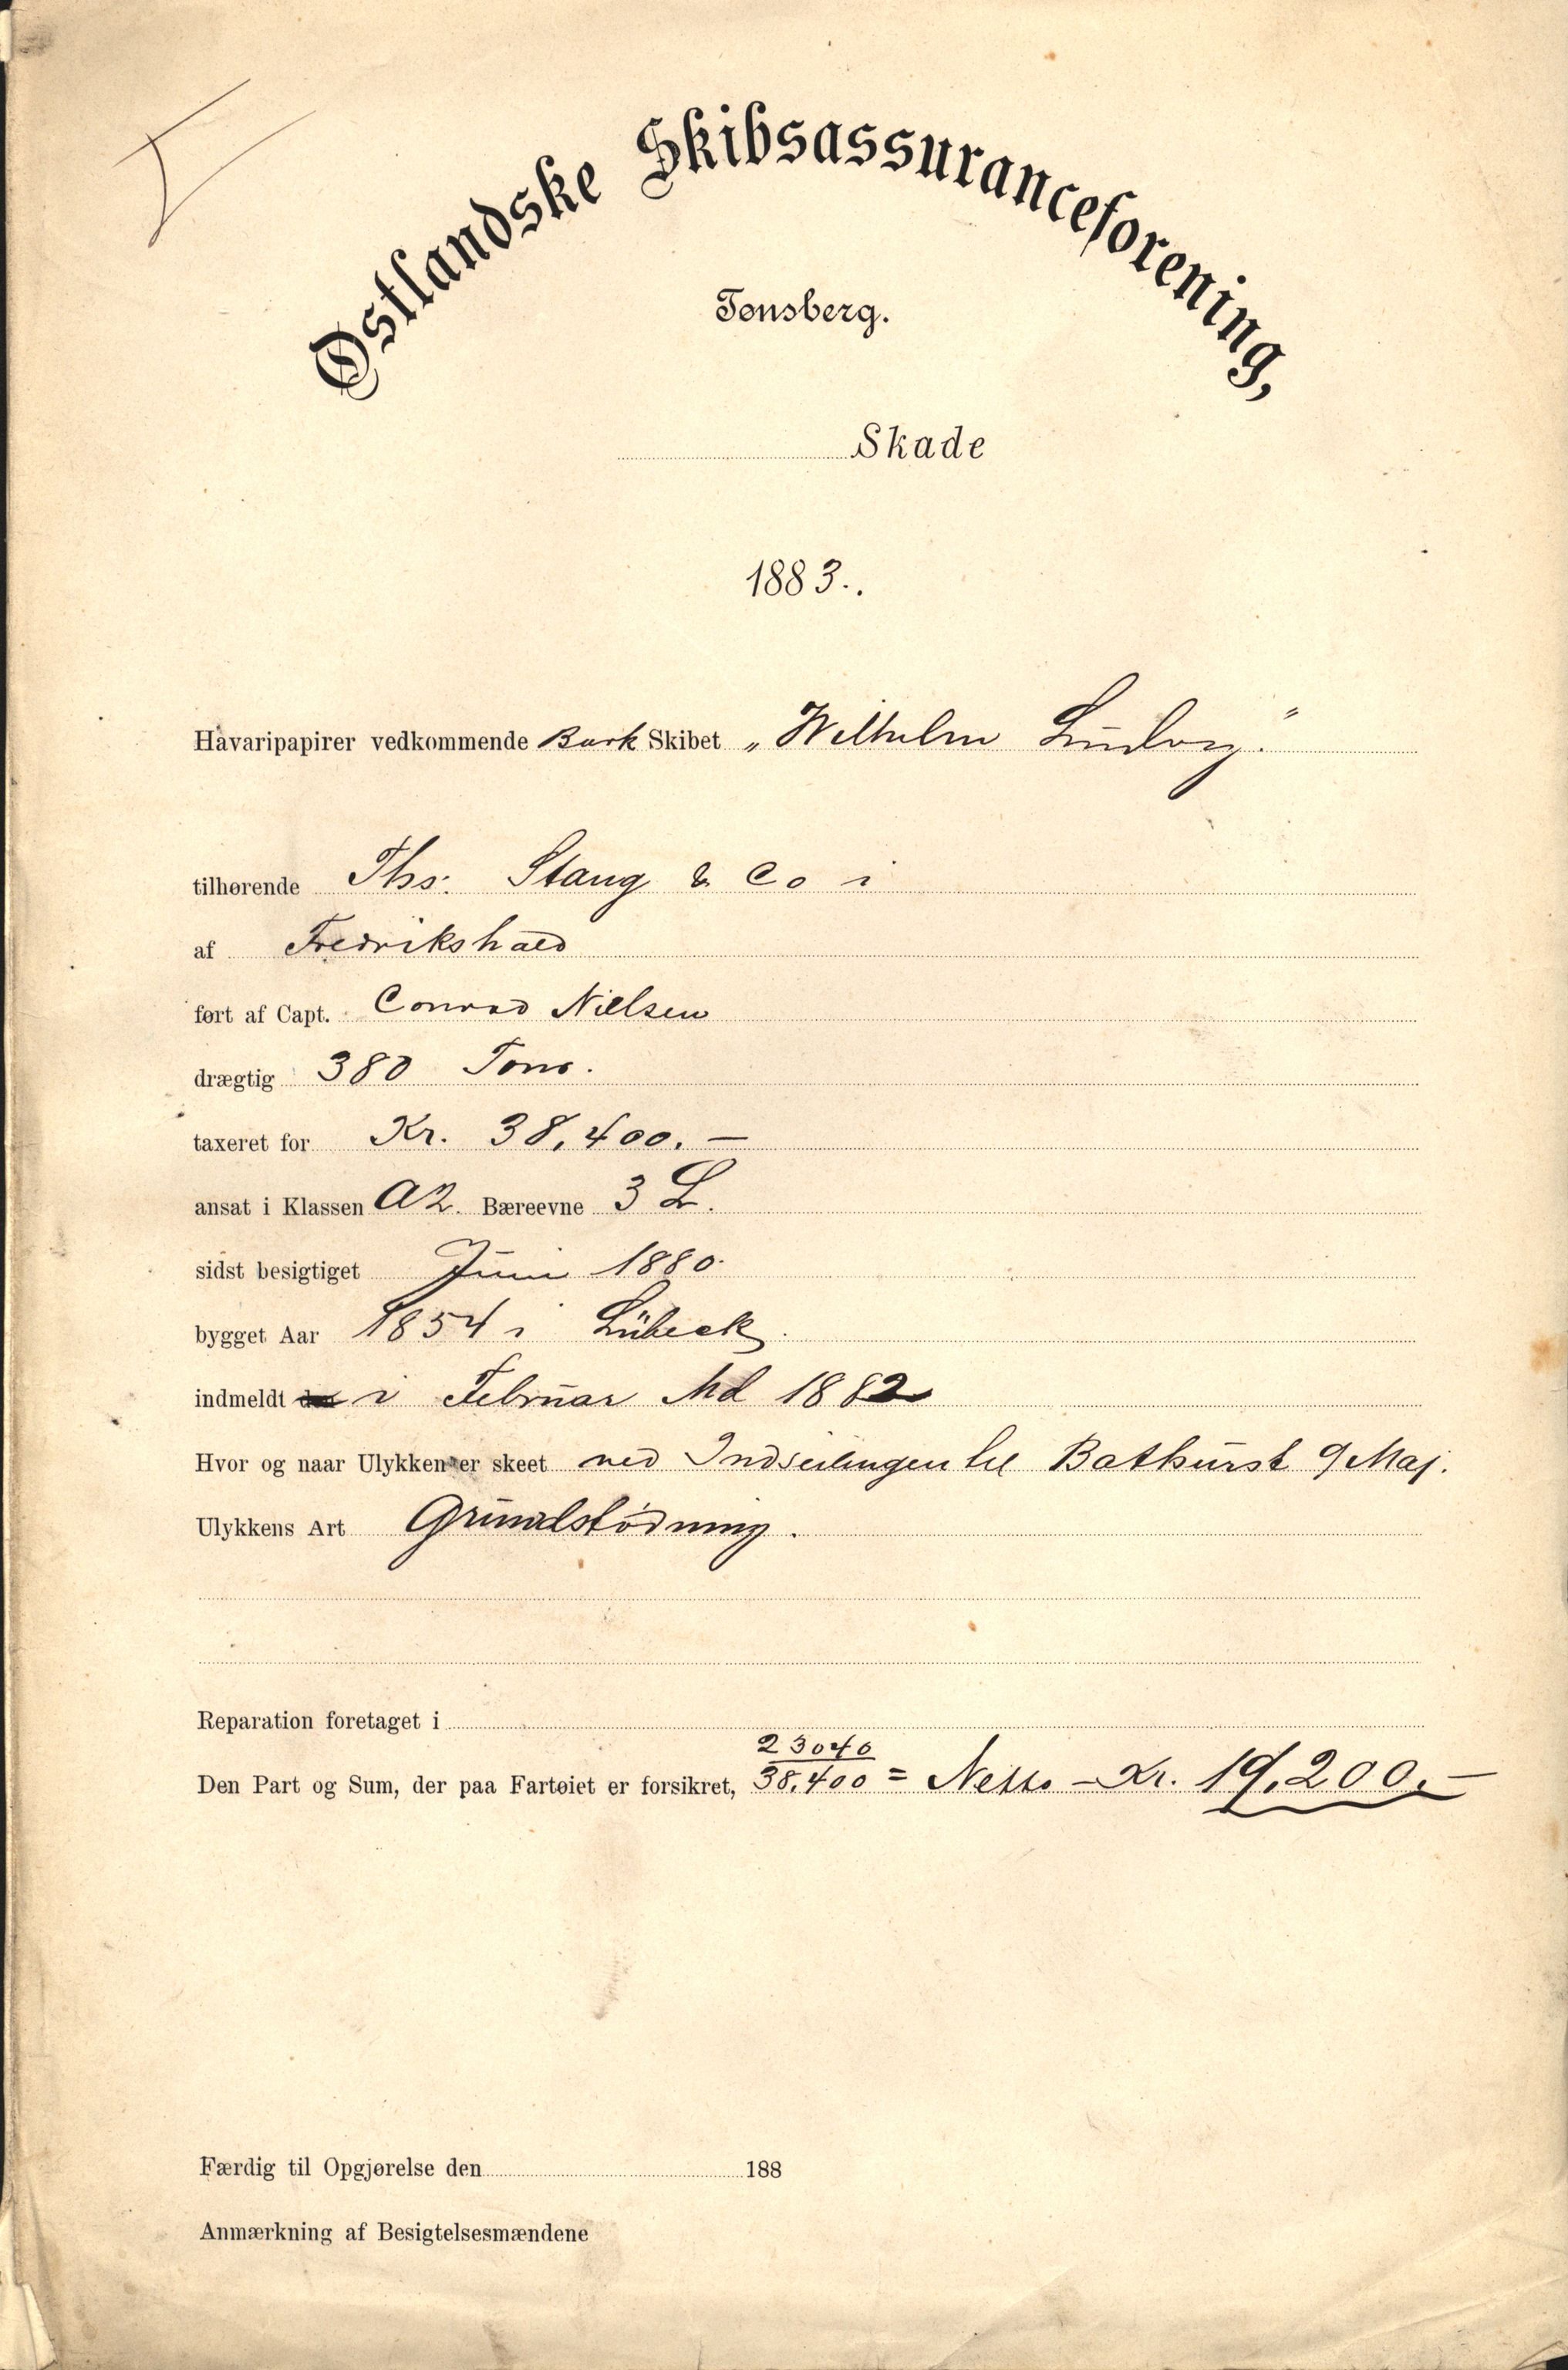 Østlandske Skibsassuranceforening,
Tønsberg.
Skade
1883.
Havaripapirer vedkommende Bark Skibet „Wilhelm Ludvig“
tilhørende Ths: Stang & Co i
af Fredrikshald
ført af Capt. Conrad Nielsen
drægtig 380 Tons.
taxeret for Kr. 38,400.—
ansat i Klassen A2. Bæreevne 3 L.
sidst besigtiget Juni 1880.
bygget Aar 1854 i Lübeck.
indmeldt i Februar Md 1882
Hvor og naar Ulykken er skeet ved Indseilingen til Bathurst 9 Maj.
Ulykkens Art Grundstødning.
Reparation foretaget i
Den Part og Sum, der paa Fartøiet er forsikret, 23040/38,400 = Netto - Kr. 19,200.—
Færdig til Opgjørelse den 188
Anmærkning af Besigtelsesmændene